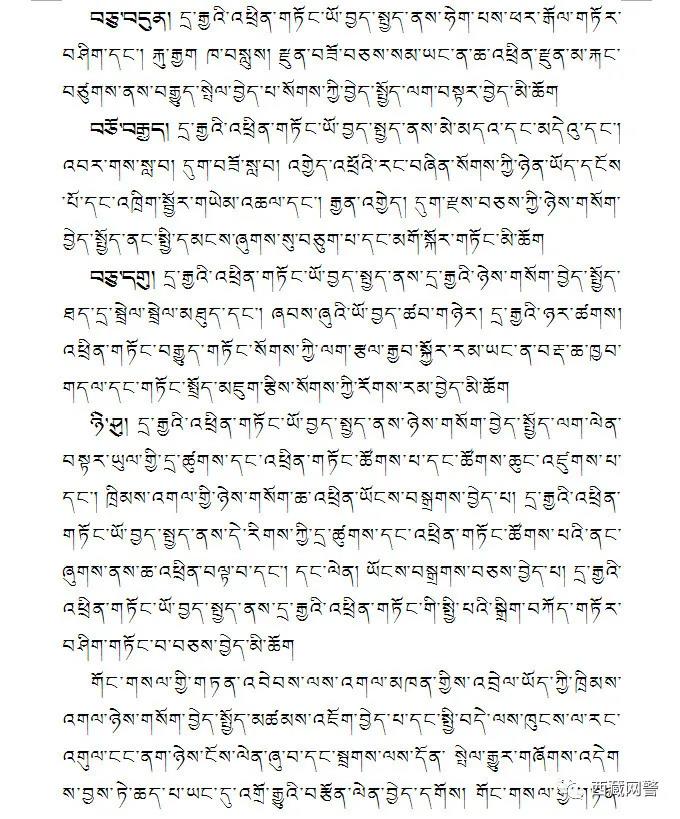 བཅུ་བདུན། དྲ་རྒྱའི་འཕྲིན་གཏོང་ཡོ་བྱད་སྤྱད་ནས་ཧེག་པས་ཕར་རྒོལ་གཏོར་
བཤིག་དང་། རྐུ་རྒྱག ཁ་བསླུས། རྫུན་བཟོ་བཅས་སམ་ཡང་ན་ཆ་འཕྲིན་རྫུན་མ་རྐང་
བཙུགས་ནས་བརྒྱུད་སྤེལ་བྱེད་པ་སོགས་ཀྱི་བྱེད་སྤྱོད་ལག་བསྟར་བྱེད་མི་ཆོག
བཅོ་བརྒྱད། དྲ་རྒྱའི་འཕྲིན་གཏོང་ཡོ་བྱད་སྤྱད་ནས་མེ་མདའ་དང་མདེའུ་དང་།
འབར་གས་སླ་བ། དུག་བཟོ་སླ་བ། འགྱེད་འཕྲོའི་རང་བཞིན་སོགས་ཀྱི་ཉེན་ཡོད་དངོས་
པོ་དང་འཁྲིག་སྦྱོར་གཡེམ་འཆལ་དང་། རྒྱན་འགྱེད། དུག་རྫས་བཅས་ཀྱི་ཉེས་གསོག་
བྱེད་སྤྱོད་ནང་སྤྱི་དམངས་ཞུགས་སུ་བཅུག་པ་དང་མགོ་སྐོར་གཏོང་མི་ཆོག
བཅུ་དགུ། དྲ་རྒྱའི་འཕྲིན་གཏོང་ཡོ་བྱད་སྤྱད་ནས་དྲ་རྒྱའི་ཉེས་གསོག་བྱེད་སྤྱོད་
ཐད་དྲ་སྦྲེལ་སྦྲེལ་མཐུད་དང་། ཞབས་ཞུའི་ཡོ་བྱད་ཚབ་གཉེར། དྲ་རྒྱའི་ཉར་ཚགས།
འཕྲིན་གཏོང་བརྒྱུད་གཏོང་སོགས་ཀྱི་ལག་རྩལ་རྒྱབ་སྐྱོར་རམ་ཡང་ན་བརྡ་ཆ་ཁྱབ་
གདལ་དང་གཏོང་སྤྲོད་མཇུག་རྩིས་སོགས་ཀྱི་རོགས་རམ་བྱེད་མི་ཆོག
ཉི་ཤུ། དྲ་རྒྱའི་འཕྲིན་གཏོང་ཡོ་བྱད་སྤྱད་ནས་ཉེས་གསོག་བྱེད་སྤྱོད་ལག་ལེན་
བསྟར་ཡུལ་གྱི་དྲ་ཚུགས་དང་འཕྲིན་གཏོང་ཚོགས་པ་དང་ཚོགས་ཆུང་འཛུགས་པ་
དང་། ཁྲིམས་འགལ་གྱི་ཉེས་གསོག་ཆ་འཕྲིན་ཡོངས་བསྒྲགས་བྱེད་པ། དྲ་རྒྱའི་འཕྲིན་
གཏོང་ཡོ་བྱད་སྤྱད་ནས་དེ་རིགས་ཀྱི་དྲ་ཚུགས་དང་འཕྲིན་གཏོང་ཚོགས་པའི་ནང་
ཞུགས་ནས་ཆ་འཕྲིན་བལྟ་བ་དང་། དང་ལེན། ཡོངས་བསྒྲགས་བཅས་བྱེད་པ། དྲ་རྒྱའི་
འཕྲིན་གཏོང་ཡོ་བྱད་སྤྱད་ནས་དྲ་རྒྱའི་འཕྲིན་གཏོང་གི་སྤྱི་པའི་སྒྲིག་བཀོད་གཏོར་
བཤིག་གཏོང་བ་བཅས་བྱེད་མི་ཆོག
གོང་གསལ་གྱི་གཏན་འབེབས་ལས་འགལ་མཁན་གྱིས་འབྲེལ་ཡོད་ཀྱི་ཁྲིམས་
འགལ་ཉེས་གསོག་བྱེད་སྤྱོད་མཚམས་འཇོག་བྱེད་པ་དང་སྤྱི་བདེ་ལས་ཁུངས་ལ་རང་
འགུལ་ངང་ནག་ཉེས་ངོས་ལེན་ཞུ་བ་དང་སྦྲགས་ལས་དོན་ སྤེལ་རྒྱུར་གཞོགས་འདེག
ས་བྱས་ཏེ་ཆད་པ་ཡང་དུ་འགྲོ་རྒྱུའི་བརྩོན་ལེན་བྱེད་དགོས། གོང་གསལ་གྱི་གཏན་
西藏网警